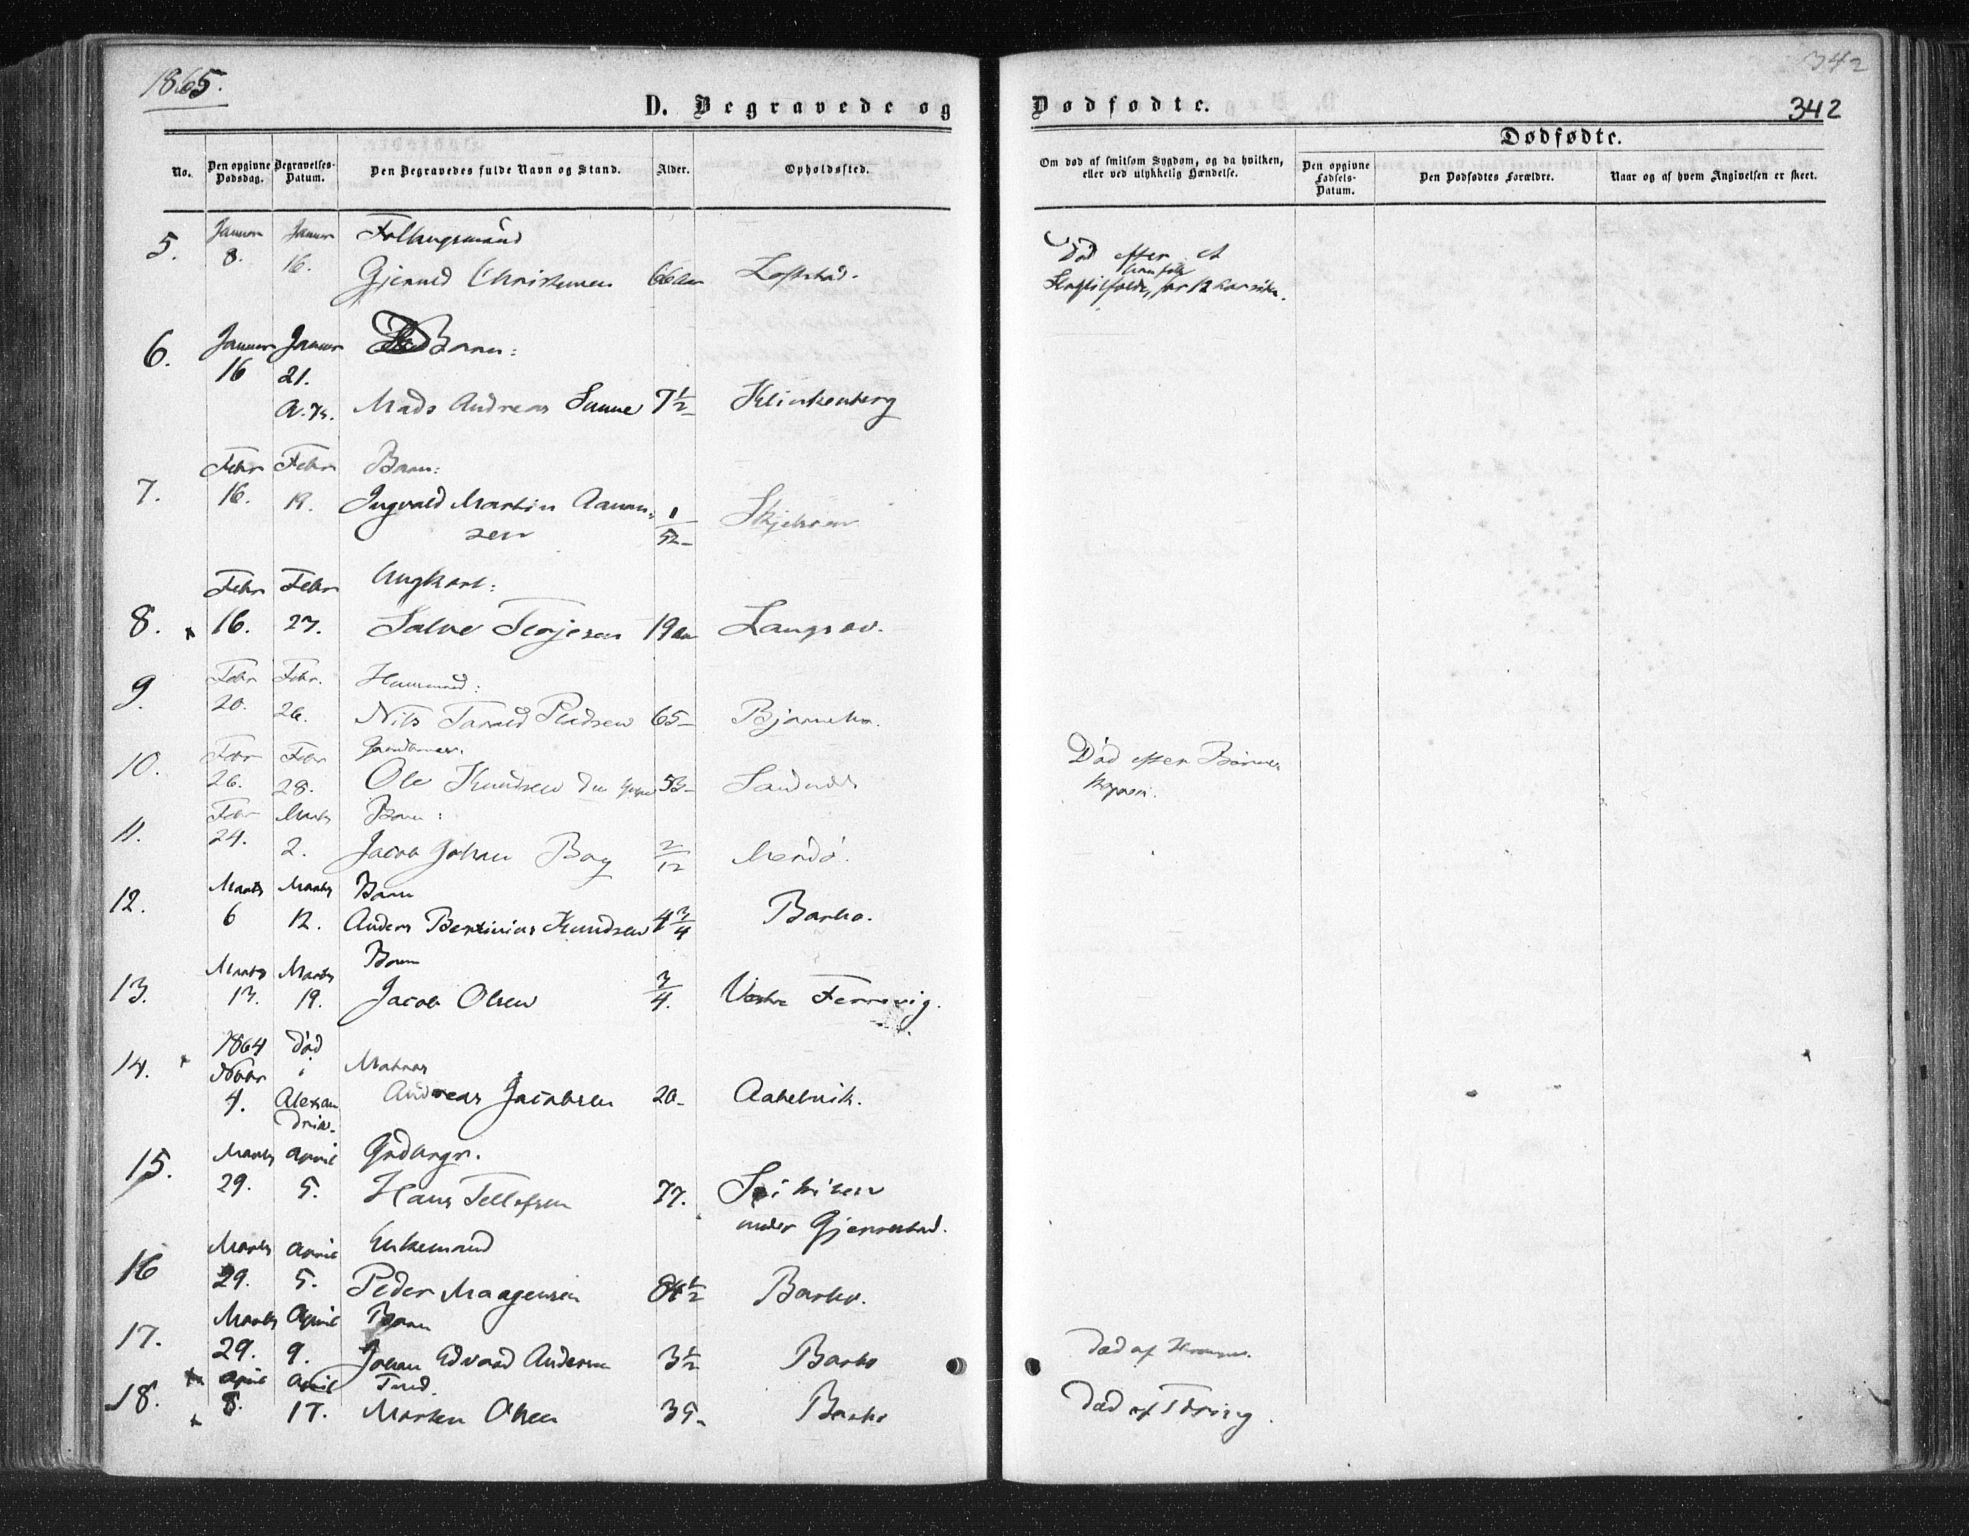 1865.
342
342
D. Begravede og Dødfødte.
Dødfødte.
No.
Den opgivne Dødsdag.
Begravelses-Datum.
Den Begravedes fulde Navn og Stand.
Alder.
Opholdssted.
Om død af smitsom Sygdom, og da hvilken, eller ved ulykkelig Hændelse.
Den opgivne Fødsels-Datum.
Den Dødfødtes Forældre.
Naar og af hvem Angivelsen er skeet.
5. Januar 8. Januar 16.
Død efter et
6. Januar 16 Januar 21. Barn:
Mads Andreas Sanne 7½ Klinkenberg
7. Febr 16. Febr 19. Barn:
Ingvald Martin Aanon-
sen 1/52
8. Febr 16. Febr 27. Ungkarl:
Salve Terjesen 19 Aar Langsæv.
9. Febr 20. Febr. 26. Huusmand:
Nils 65
10. Febr 26. Febr 28.
Ole Knudsen 53
Død efter Børne
Kopper.
11. Febr 24. Marts 2. Barn:
Jacob Johan Boy 2/12 Merdø.
12. Marts 6 Marts 12. Barn
Anders Bertinius Knudsen 4¾ Barbo.
13. Marts 13. Marts 19. Barn
Jacob Olsen ¾. Vestre Ferrevig.
14. 1864 Novbr 4. Død i Alexandria. Matros
Andreas Jacobsen 20
15. Marts 29. April 5.
Hans Tellefsen 77.
under Gjennestad.
16 Marts 29. April 5. Enkemand
Peder Maagensen 84½ Barbo.
17. Marts 29. April 9. Barn
Johan Edvard Andersen 3½ Barbo
Død af
18. April 8. April 17.
Morten Olsen 39 Barbo
Død af Tæring.